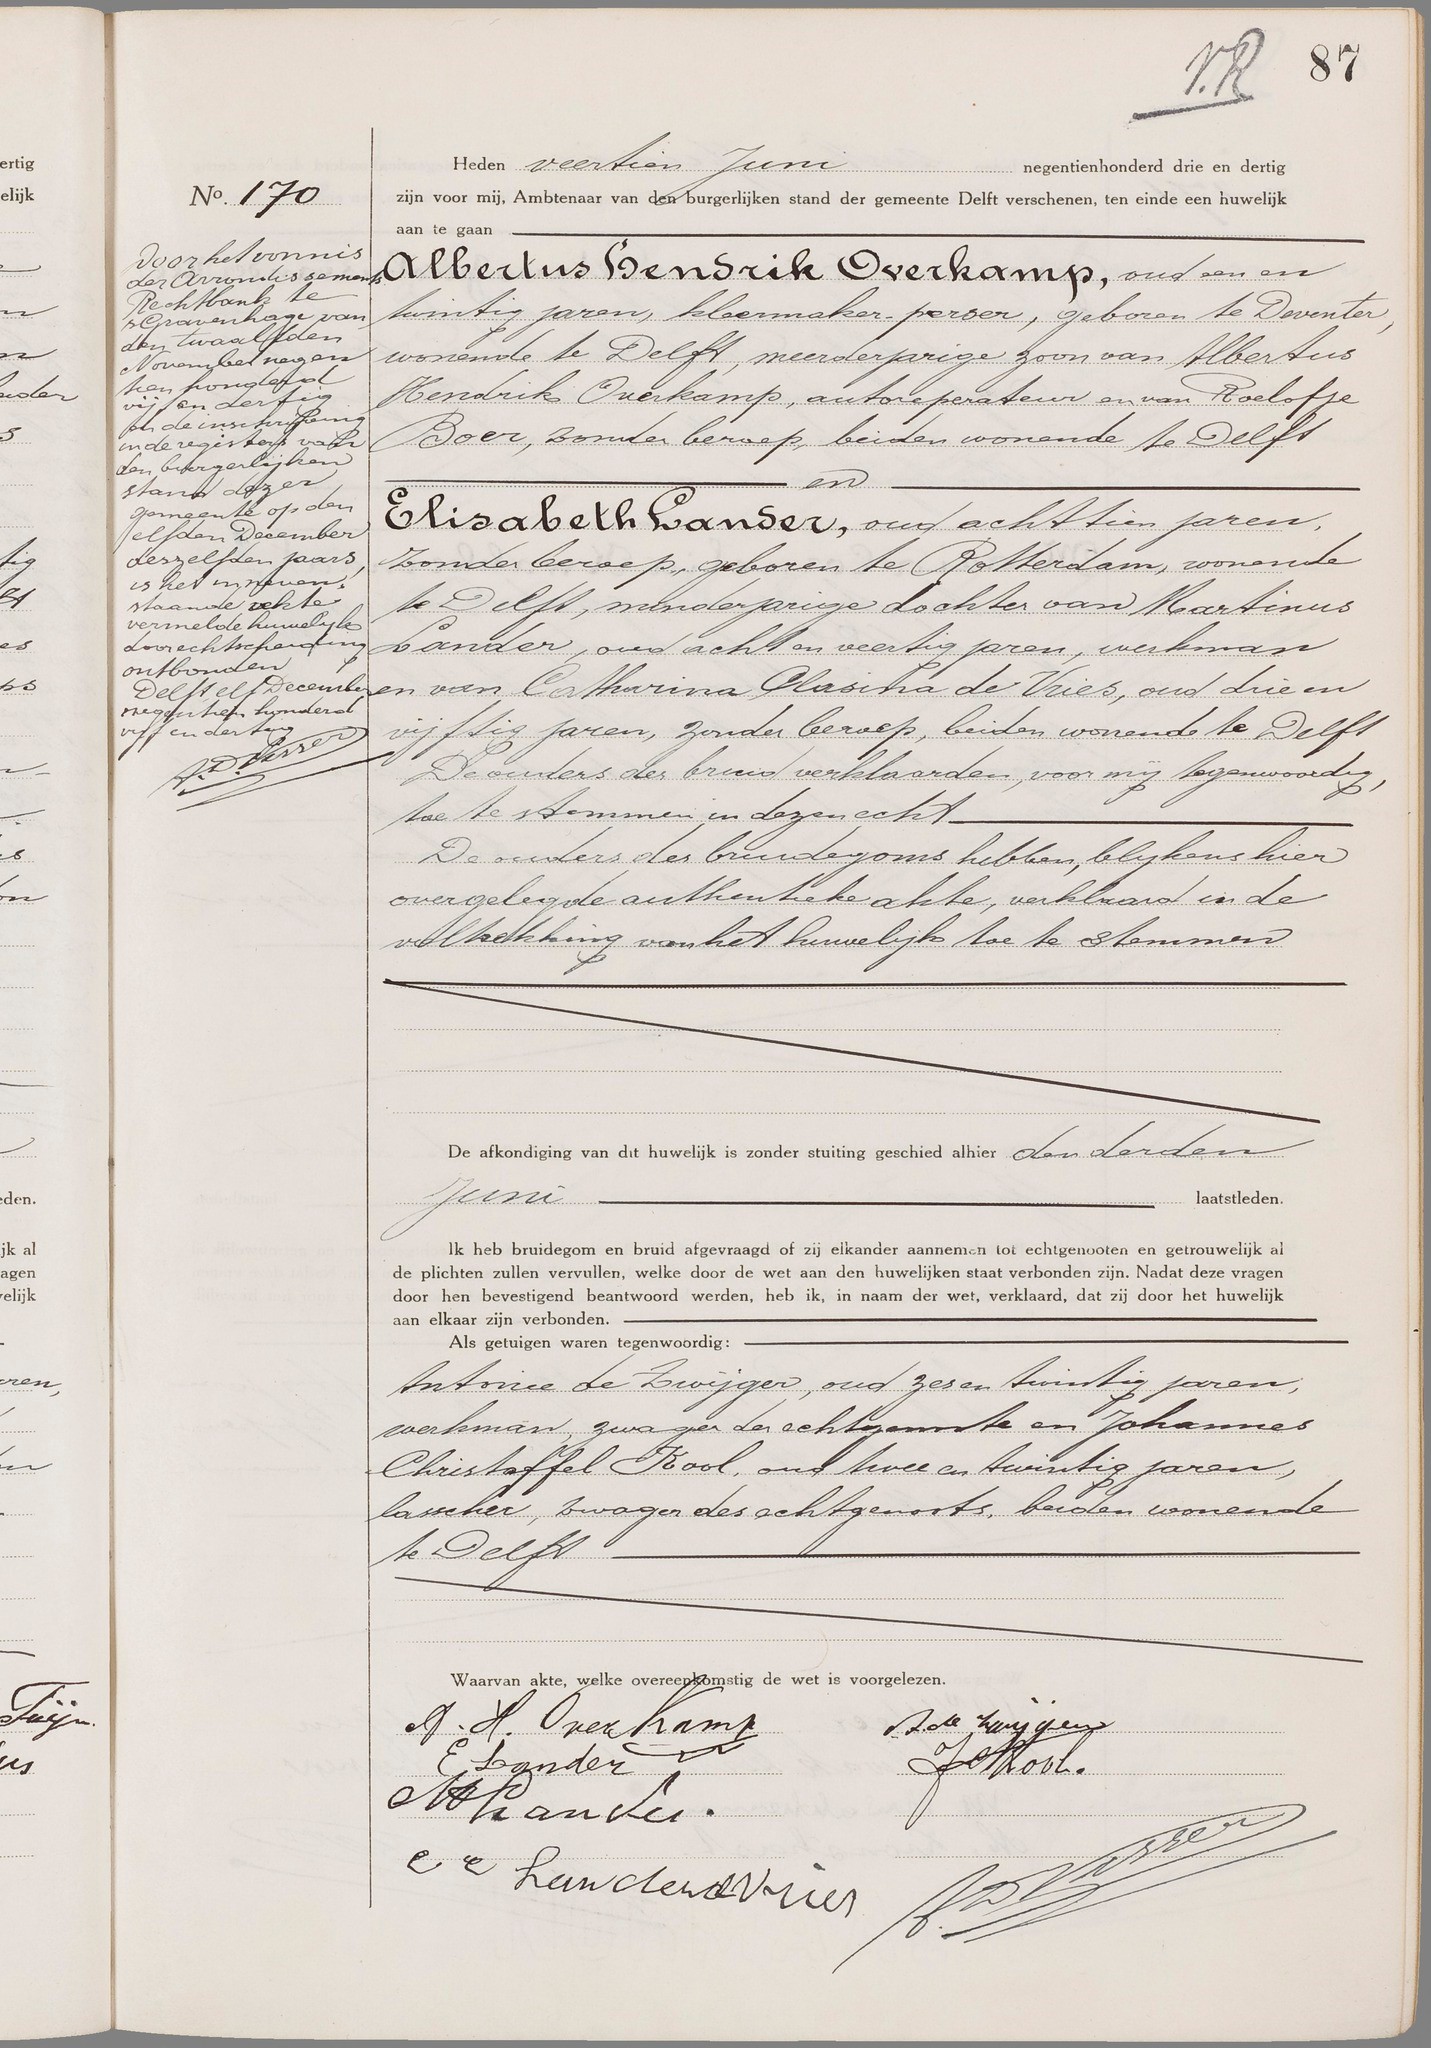 V.R
87
Heden veertien Juni negentienhonderd drie en dertig
zijn voor mij, Ambtenaar van den burgerlijken stand der gemeente Delft verschenen, ten einde een huwelijk
aan te gaan
Albertus Hendrik Overkamp, oud een en
twintig jaren, kleermaker-perser, geboren te Deventer,
wonende te Delft, meerderjarige zoon van Albertus
Hendrik Overkamp, autoreperateur en van Roelofje
Boer, zonder beroep, beiden wonende te Delft
en
Elisabeth Lander, oud achttien jaren,
zonder beroep, geboren te Rotterdam, wonende
te Delft, minderjarige dochter van Martinus
Lander, oud acht en veertig jaren, werkman
en van Catharina Clasina de Vries, oud drie en
vijftig jaren, zonder beroep, beiden wonende te Delft
De ouders der bruid verklaarden, voor mij tegenwoordig,
toe te stemmen in dezen echt
De ouders des bruidegoms hebben, blijkens hier
overgelegde authentieke akte, verklaard in de
voltrekking van het huwelijk toe te stemmen
De afkondiging van dit huwelijk is zonder stuiting geschied alhier den derden
Juni laatstleden.
Ik heb bruidegom en bruid afgevraagd of zij elkander aannemen tot echtgenooten en getrouwelijk al
de plichten zullen vervullen, welke door de wet aan den huwelijken staat verbonden zijn. Nadat deze vragen
door hen bevestigend beantwoord werden, heb ik, in naam der wet, verklaard, dat zij door het huwelijk
aan elkaar zijn verbonden.
Als getuigen waren tegenwoordig:
Antonie de Zwijger, oud zes en twintig jaren,
werkman, zwager der echtgenoote en Johannes
Christoffel Kool, oud twee en twintig jaren,
lasscher, zwager des echtgenoots, beiden wonende
te Delft
Waarvan akte, welke overeenkomstig de wet is voorgelezen.
A. H. Overkamp
A de Zwijger
E Lander
J C Kool.
M Lander.
C C Lander de Vries
No. 170
Door het vonnis
der Arrondissements
Rechtbank te
's Gravenhage van
den twaalfden
November negen
tien honderd
vijf en dertig
en de inschrijving
in de registers van
den burgerlijken
stand dezer
gemeente op den
elfden December
deszelfden jaars,
is het in neven-
staande akte
vermelde huwelijk
door echtscheiding
ontbonden
Delft elf December
negentien honderd
vijf en dertig
ertig
elijk
eden.
jk al
agen
elijk